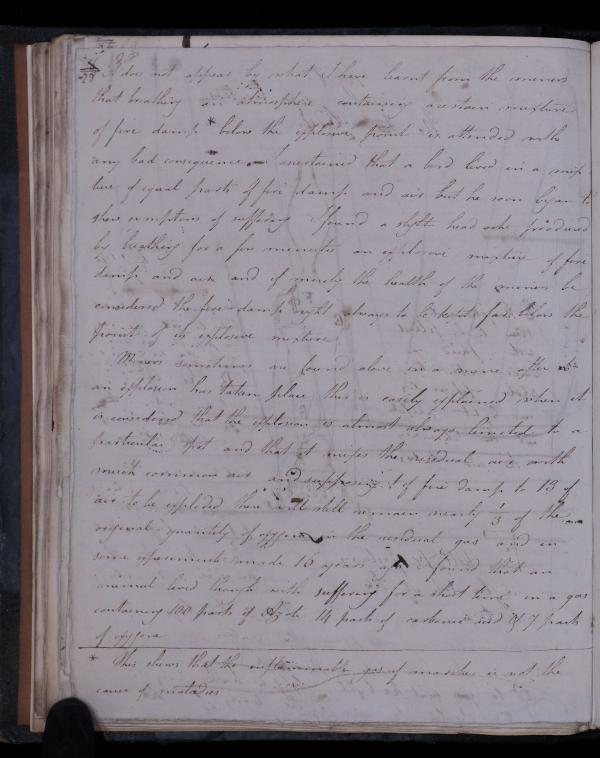 28
It does not appear by what I have learnt from the miners
that breathing an atmosphere containing a certain mixture
of fire damp * below the explosive point is attended with
any bad consequence. I ascertained that a bird lived in a mix
ture of equal parts of fire damp and air but he soon began to
shew symptoms of suffering I found a slight head ache produced
by breathing for a few minutes an explosive mixture of fire
damp and air and if merely the health of the miners be
considered the fire damp ought always to be kept far below the
point of its explosive mixture
Miners sometimes are found alive in a mine after
an explosion has taken place this is easily explained when it
is considered that the explosion is almost always limited to a
particular spot and that it mixes the residual air with
much common air and supposing 1 of fire damp to 13 of
air to be exploded there will still remain nearly 1/3 of the
original quantity of oxygen in the residual gas and in
some experiments made 16 years ago I found that an
animal lived though with suffering for a short time in a gas
containing 100 parts of Azote 14 parts of carbonic acid & 7 parts
of oxygene
* This shews that the inflammable gas of marshes is not the
cause of maladies